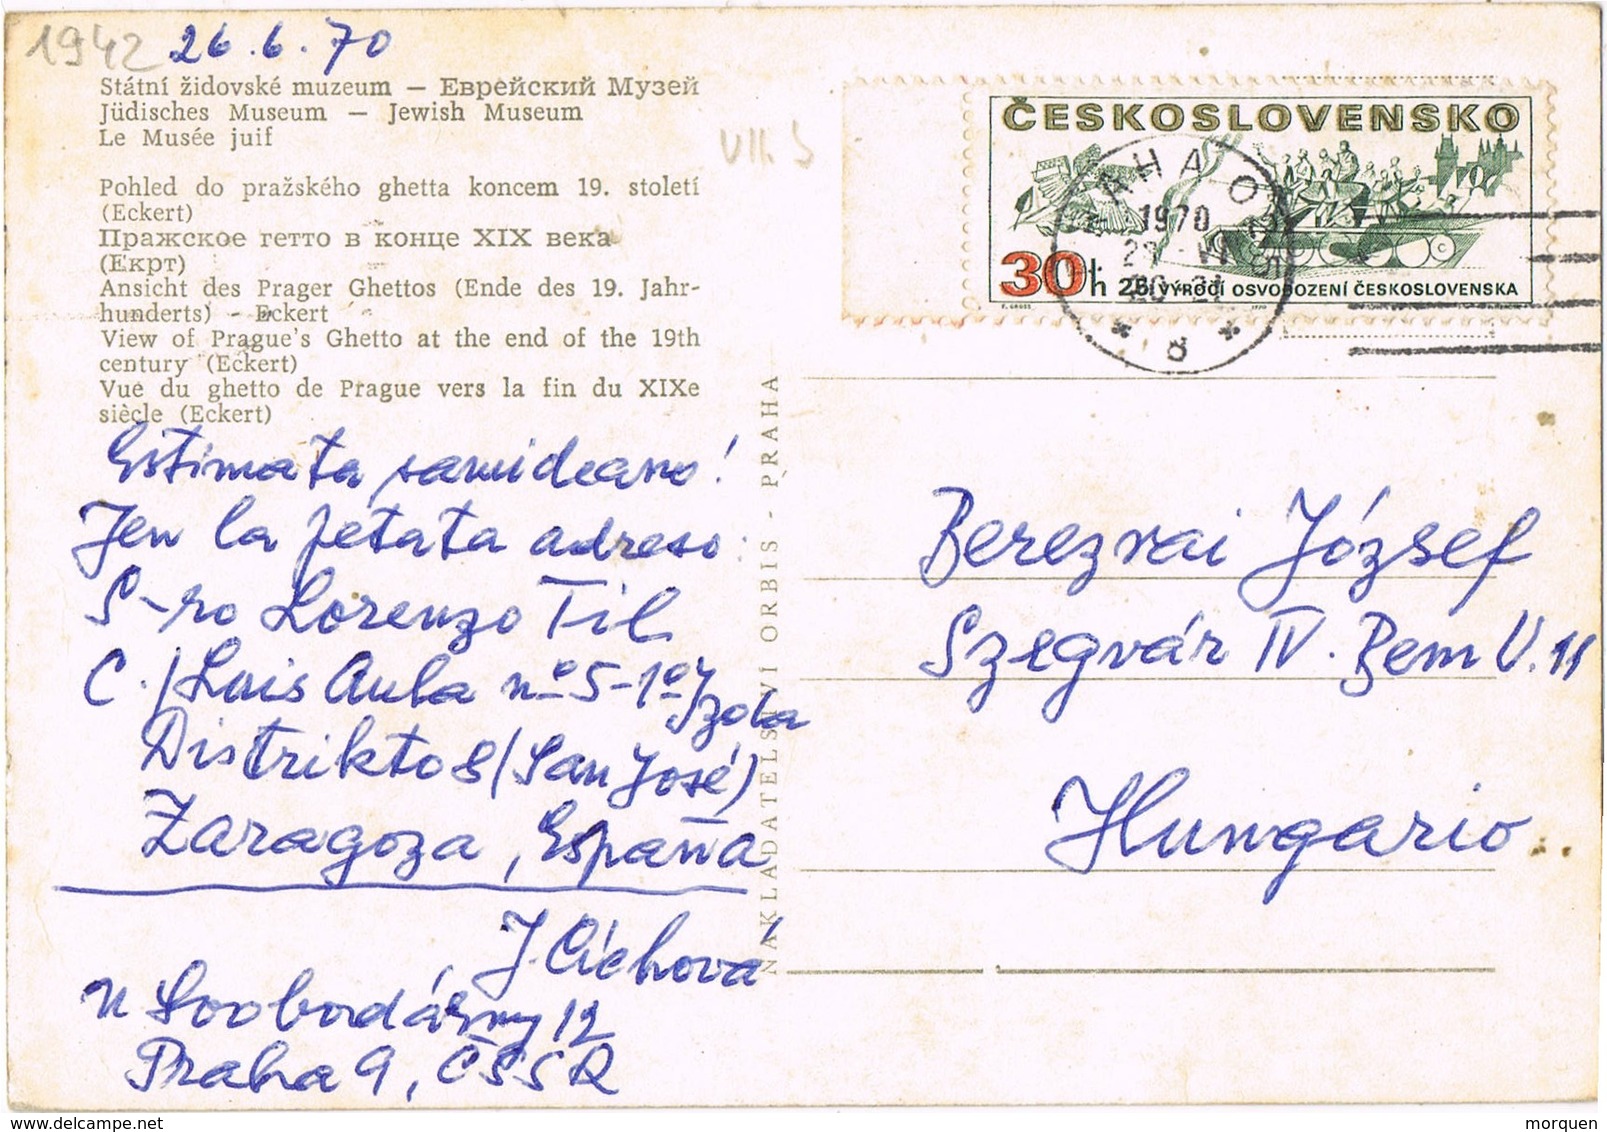 1942 26.6.70
Státní židovské muzeum — Еврейский Музей
Jüdisches Museum — Jewish Museum
Le Musée juif
Pohled do pražského ghetta koncem 19. století
(Eckert)
Пражское гетто в конце XIX века
(Екрт)
Ansicht des Prager Ghettos (Ende des 19. Jahr-
hunderts) - Eckert
View of Prague's Ghetto at the end of the 19th
century (Eckert)
Vue du ghetto de Prague vers la fin du XIXe
siècle (Eckert)
Estimata samideano!
Jen la petata adreso:
S-ro Lorenzo Til
C./Luis Aula nº 5-1º Izola
Distrikto 8 (San José)
Zaragoza, España
J. Cíchová
U Svobodárny 12
Praha 9, ČSSR
NAKLADATELSTVÍ ORBIS - PRAHA
VII.
ČESKOSLOVENSKO
30h 25. VÝROČÍ OSVOBOZENÍ ČESKOSLOVENSKA
PRAHA
1970
* 8 *
Berezvai József
Szegvár IV. Bem U. 11
Hungario
morquen